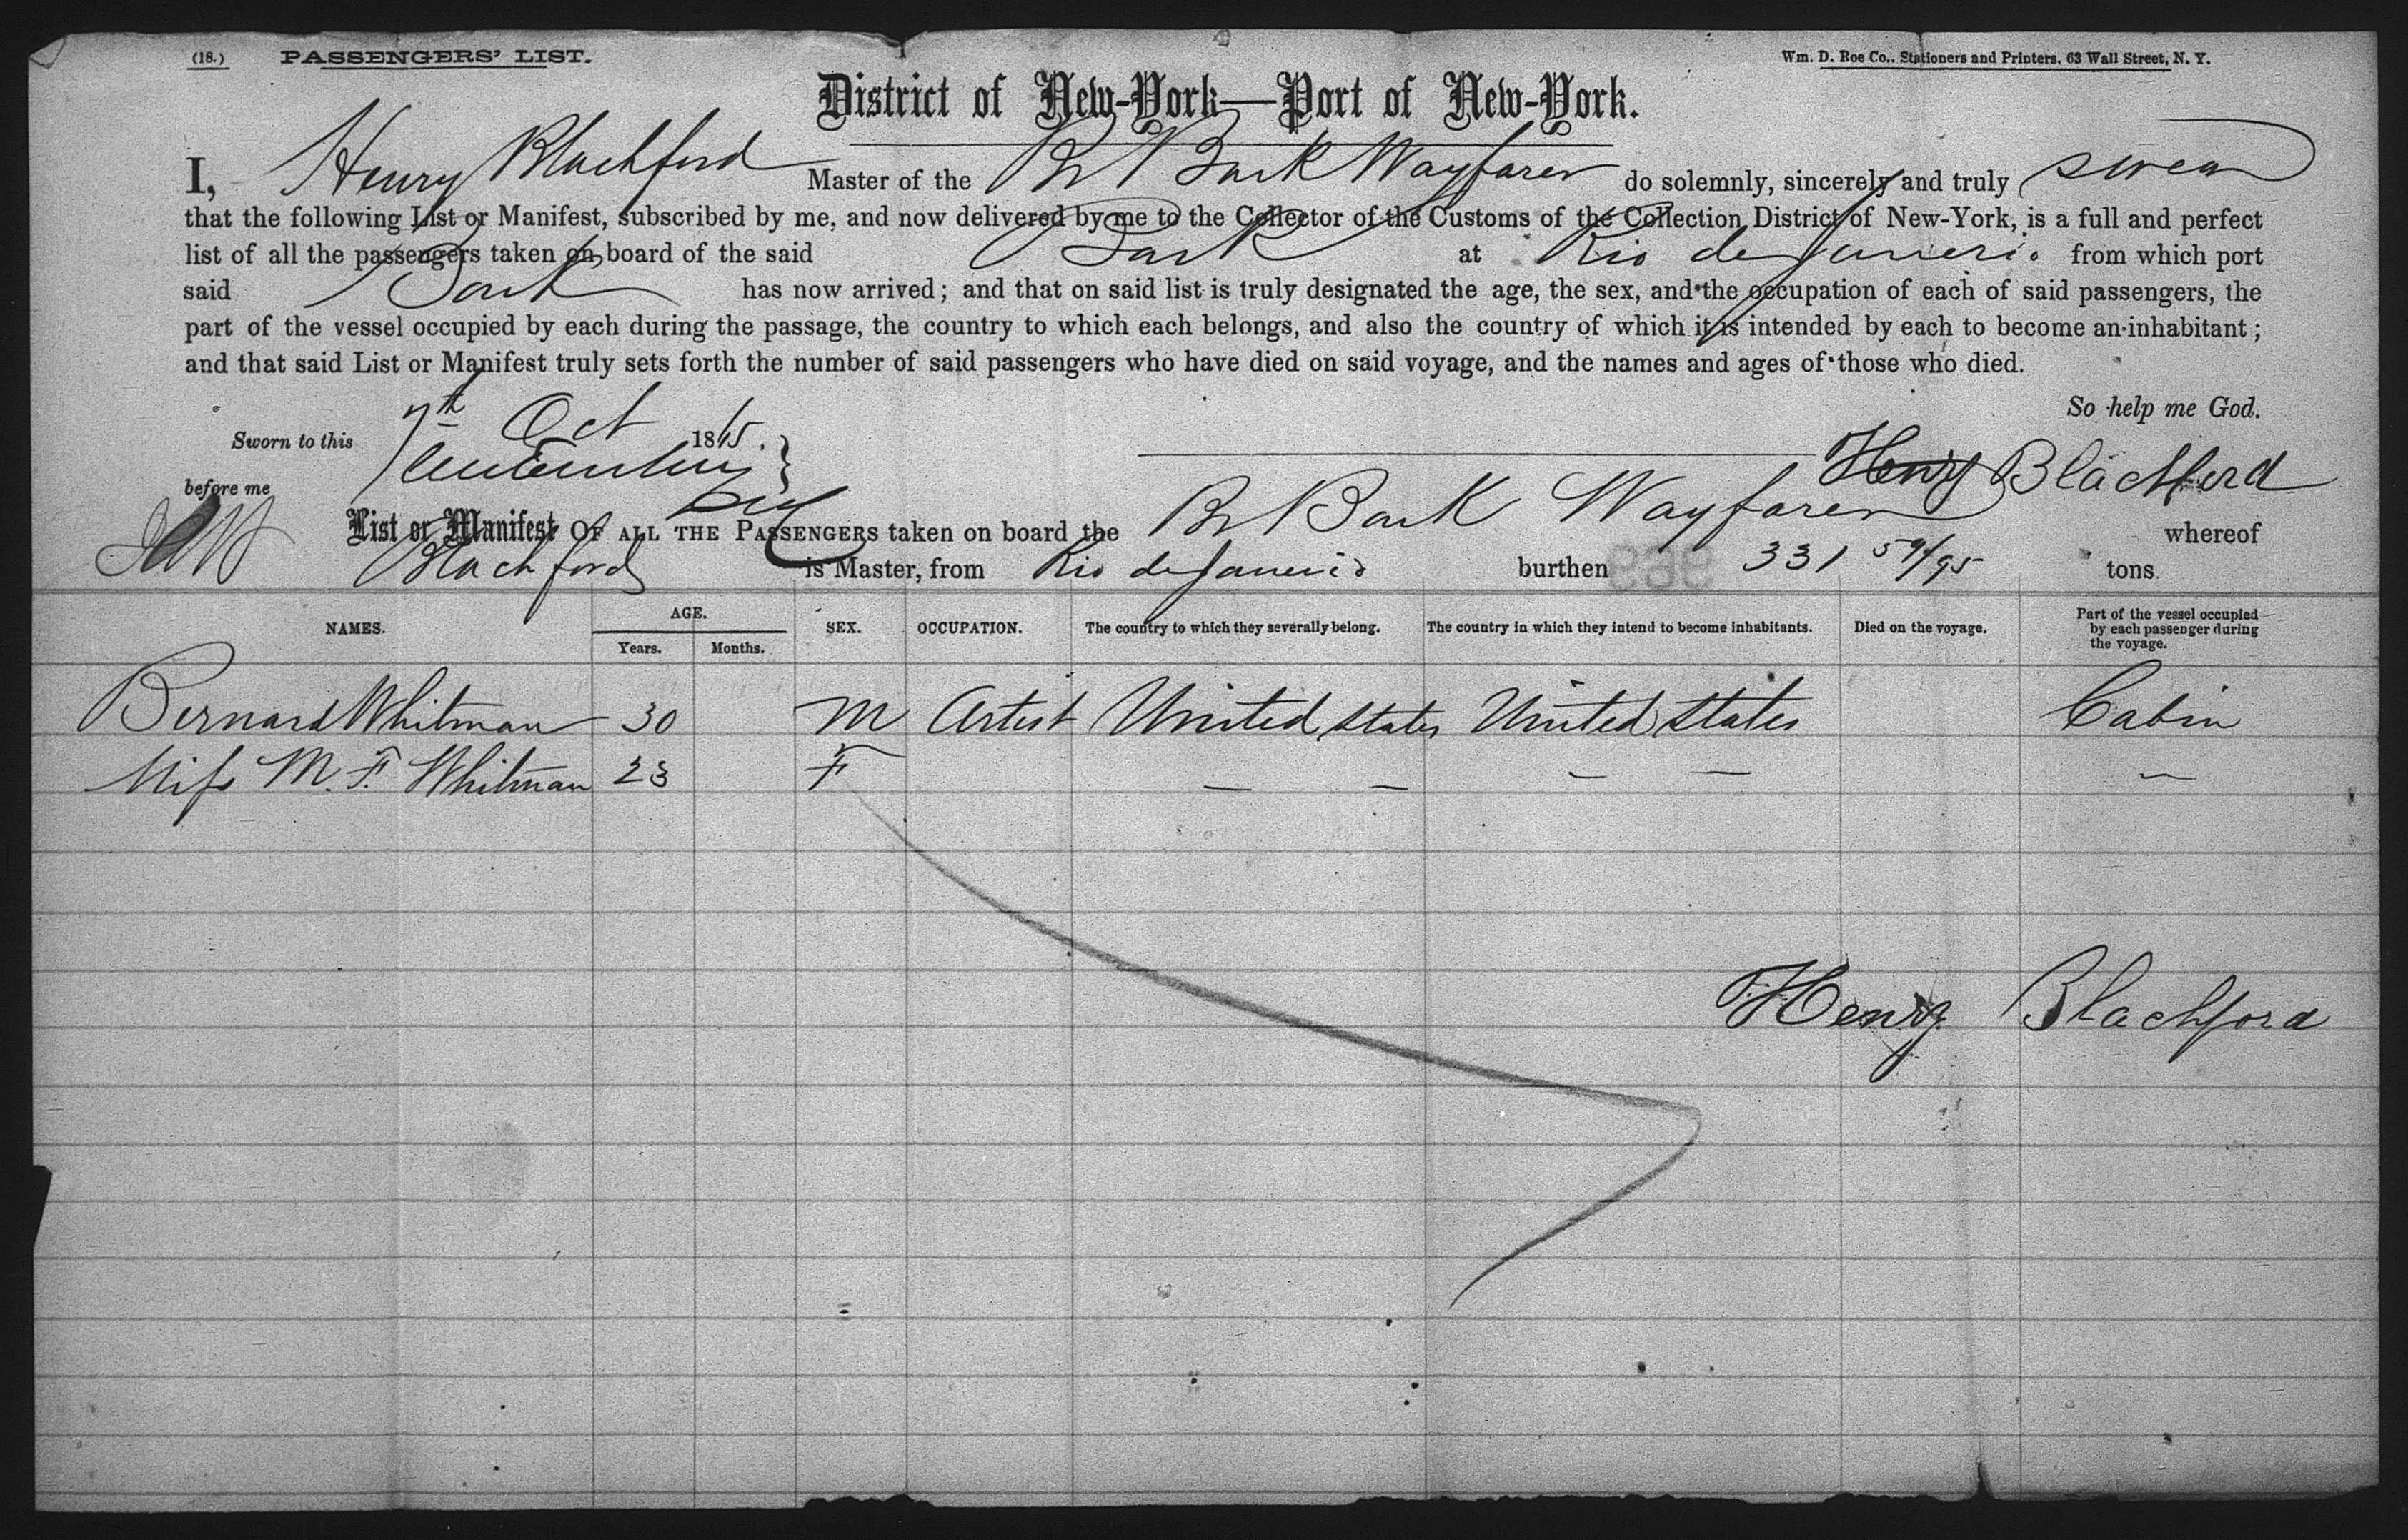 (18.) PASSENGERS' LIST. Wm. D. Roe Co., Stationers and Printers, 63 Wall Street, N. Y.
District of New-York—Port of New-York.
I, Henry Blachford Master of the Br Bark Wayfarer do solemnly, sincerely and truly swear
that the following List or Manifest, subscribed by me, and now delivered by me to the Collector of the Customs of the Collection District of New-York, is a full and perfect
list of all the passengers taken on board of the said Bark at Rio de Janerio from which port
said Bark has now arrived; and that on said list is truly designated the age, the sex, and the occupation of each of said passengers, the
part of the vessel occupied by each during the passage, the country to which each belongs, and also the country of which it is intended by each to become an inhabitant;
and that said List or Manifest truly sets forth the number of said passengers who have died on said voyage, and the names and ages of those who died.
So help me God.
Sworn to this 7th Oct 18
before me Henry Blachford
List or Manifest OF ALL THE PASSENGERS taken on board the Br Bark Wayfarer whereof
Blachford is Master, from Rio de Janerio burthen 331 59/95 tons
NAMES. AGE. Years. Months. SEX. OCCUPATION. The country to which they severally belong. The country in which they intend to become inhabitants. Died on the voyage. Part of the vessel occupied by each passenger during the voyage.
Bernard Whitman 30 M Artist United States United States Cabin
Miss M. F. Whitman 23 F — — — — —
Henry Blachford